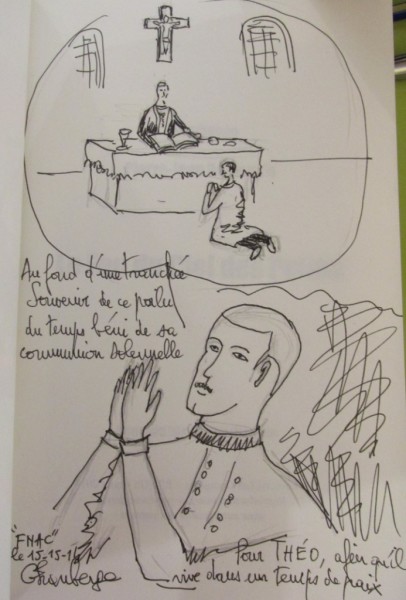 Au fond d'une tranchée
Souvenir de ce poilu
du temps béni de sa
communion solennelle
"FNAC"
le 15-15-1
Pour THÉO, afin qu'il
vive dans un temps de paix